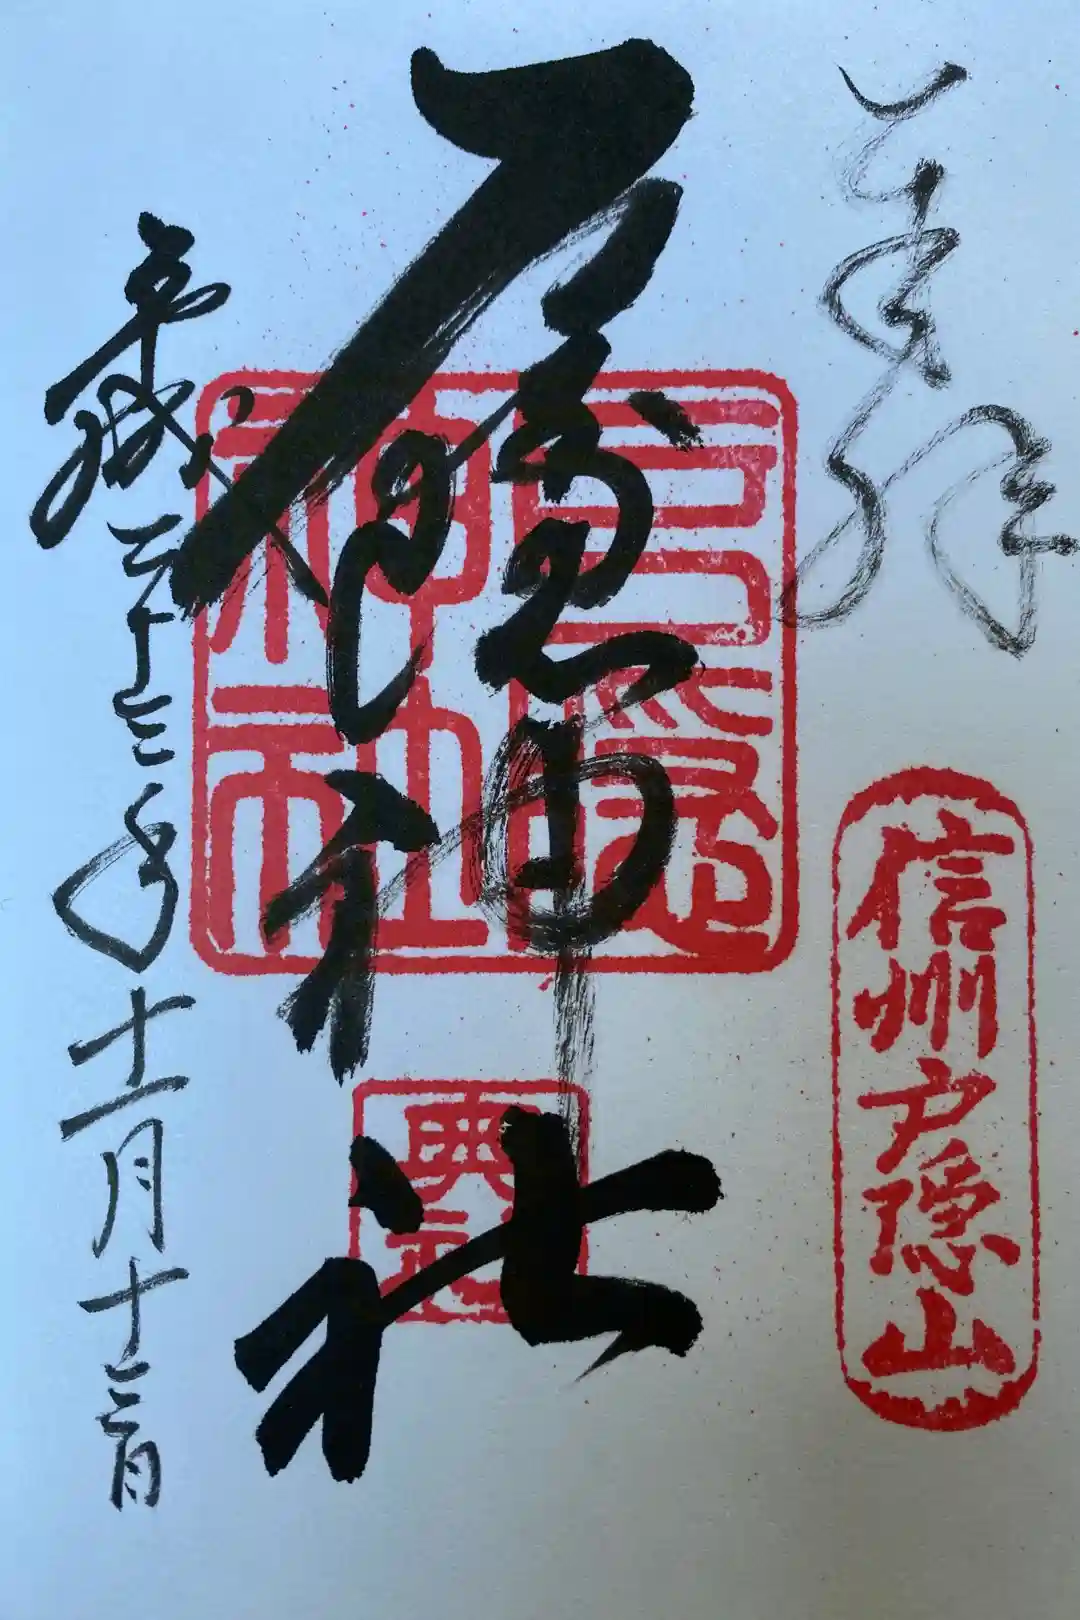 奉拝
信州戸隠山
戸隠神社
戸隠神社
平成二十三年十一月十二日